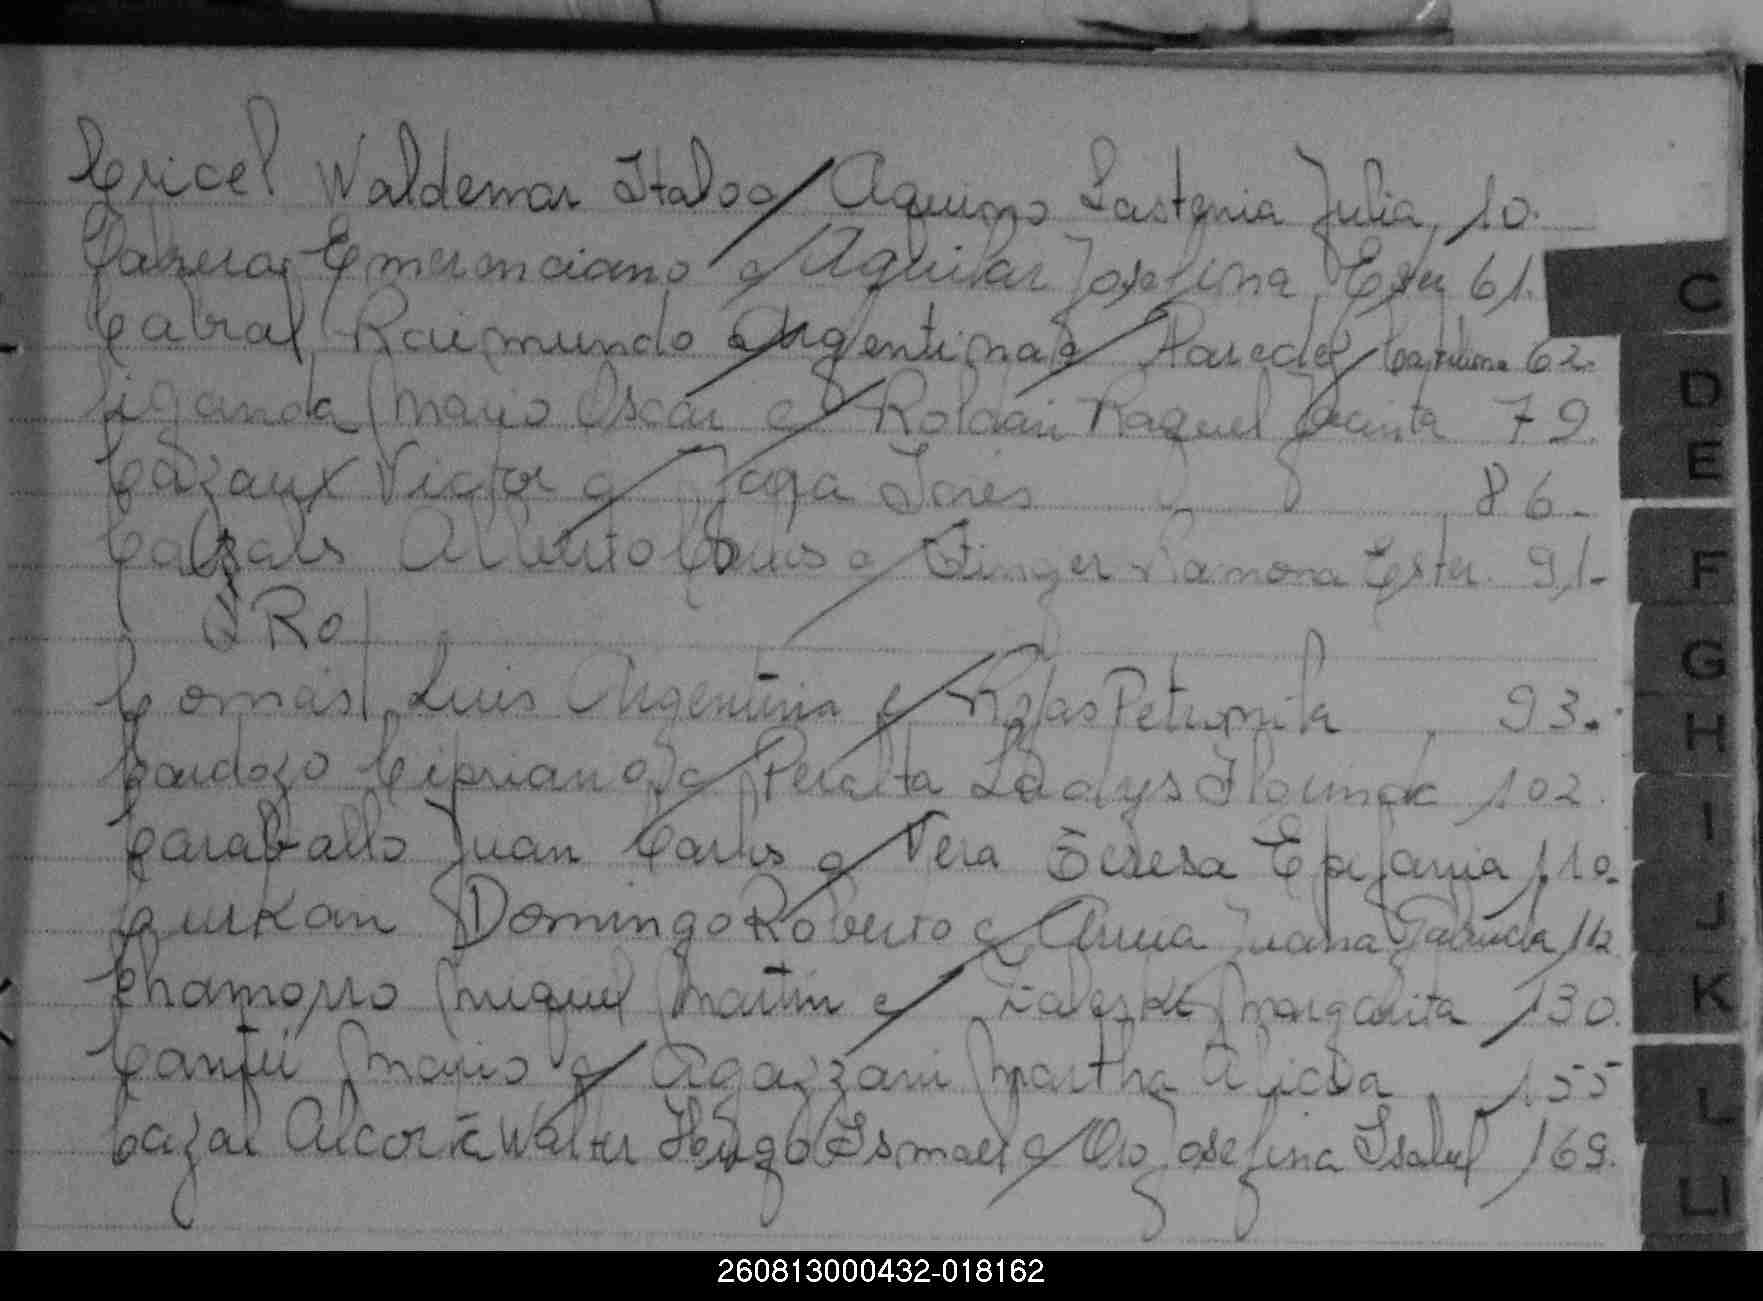 Cricel Waldemar Italo c/ Aquino Lastenia Julia 10.
Cabrera Emerenciano c/ Aguilar Josefina Ester 61.
Cabral Raimundo Argentina c/ Paredes Catalina 62.
Ciganda Mario Oscar c/ Roldan Raquel Jacinta 79.
Cazaux Victor c/ Jara Ines 86.
Alberto c/ Finger Ramona Ester. 91.
Ro
Comas Luis Argentina c/ Rojas Petronila 93.
Cardozo Cipriano c/ Peralta Ladys Florinda 102.
Caraballo Juan Carlos c/ Vera Teresa Epifania 110.
Curkan Domingo Roberto c/ Juana 112
Chamorro Miguel Martin c/ Zaleski Margarita 130.
Cantú Mario c/ Agazzani Martha Alicia 155
Cazal Alcorta Walter Hugo Ismael c/ Oro Josefina Isabel 169.
C
D
E
F
G
H
I
J
K
L
Ll
260813000432-018162